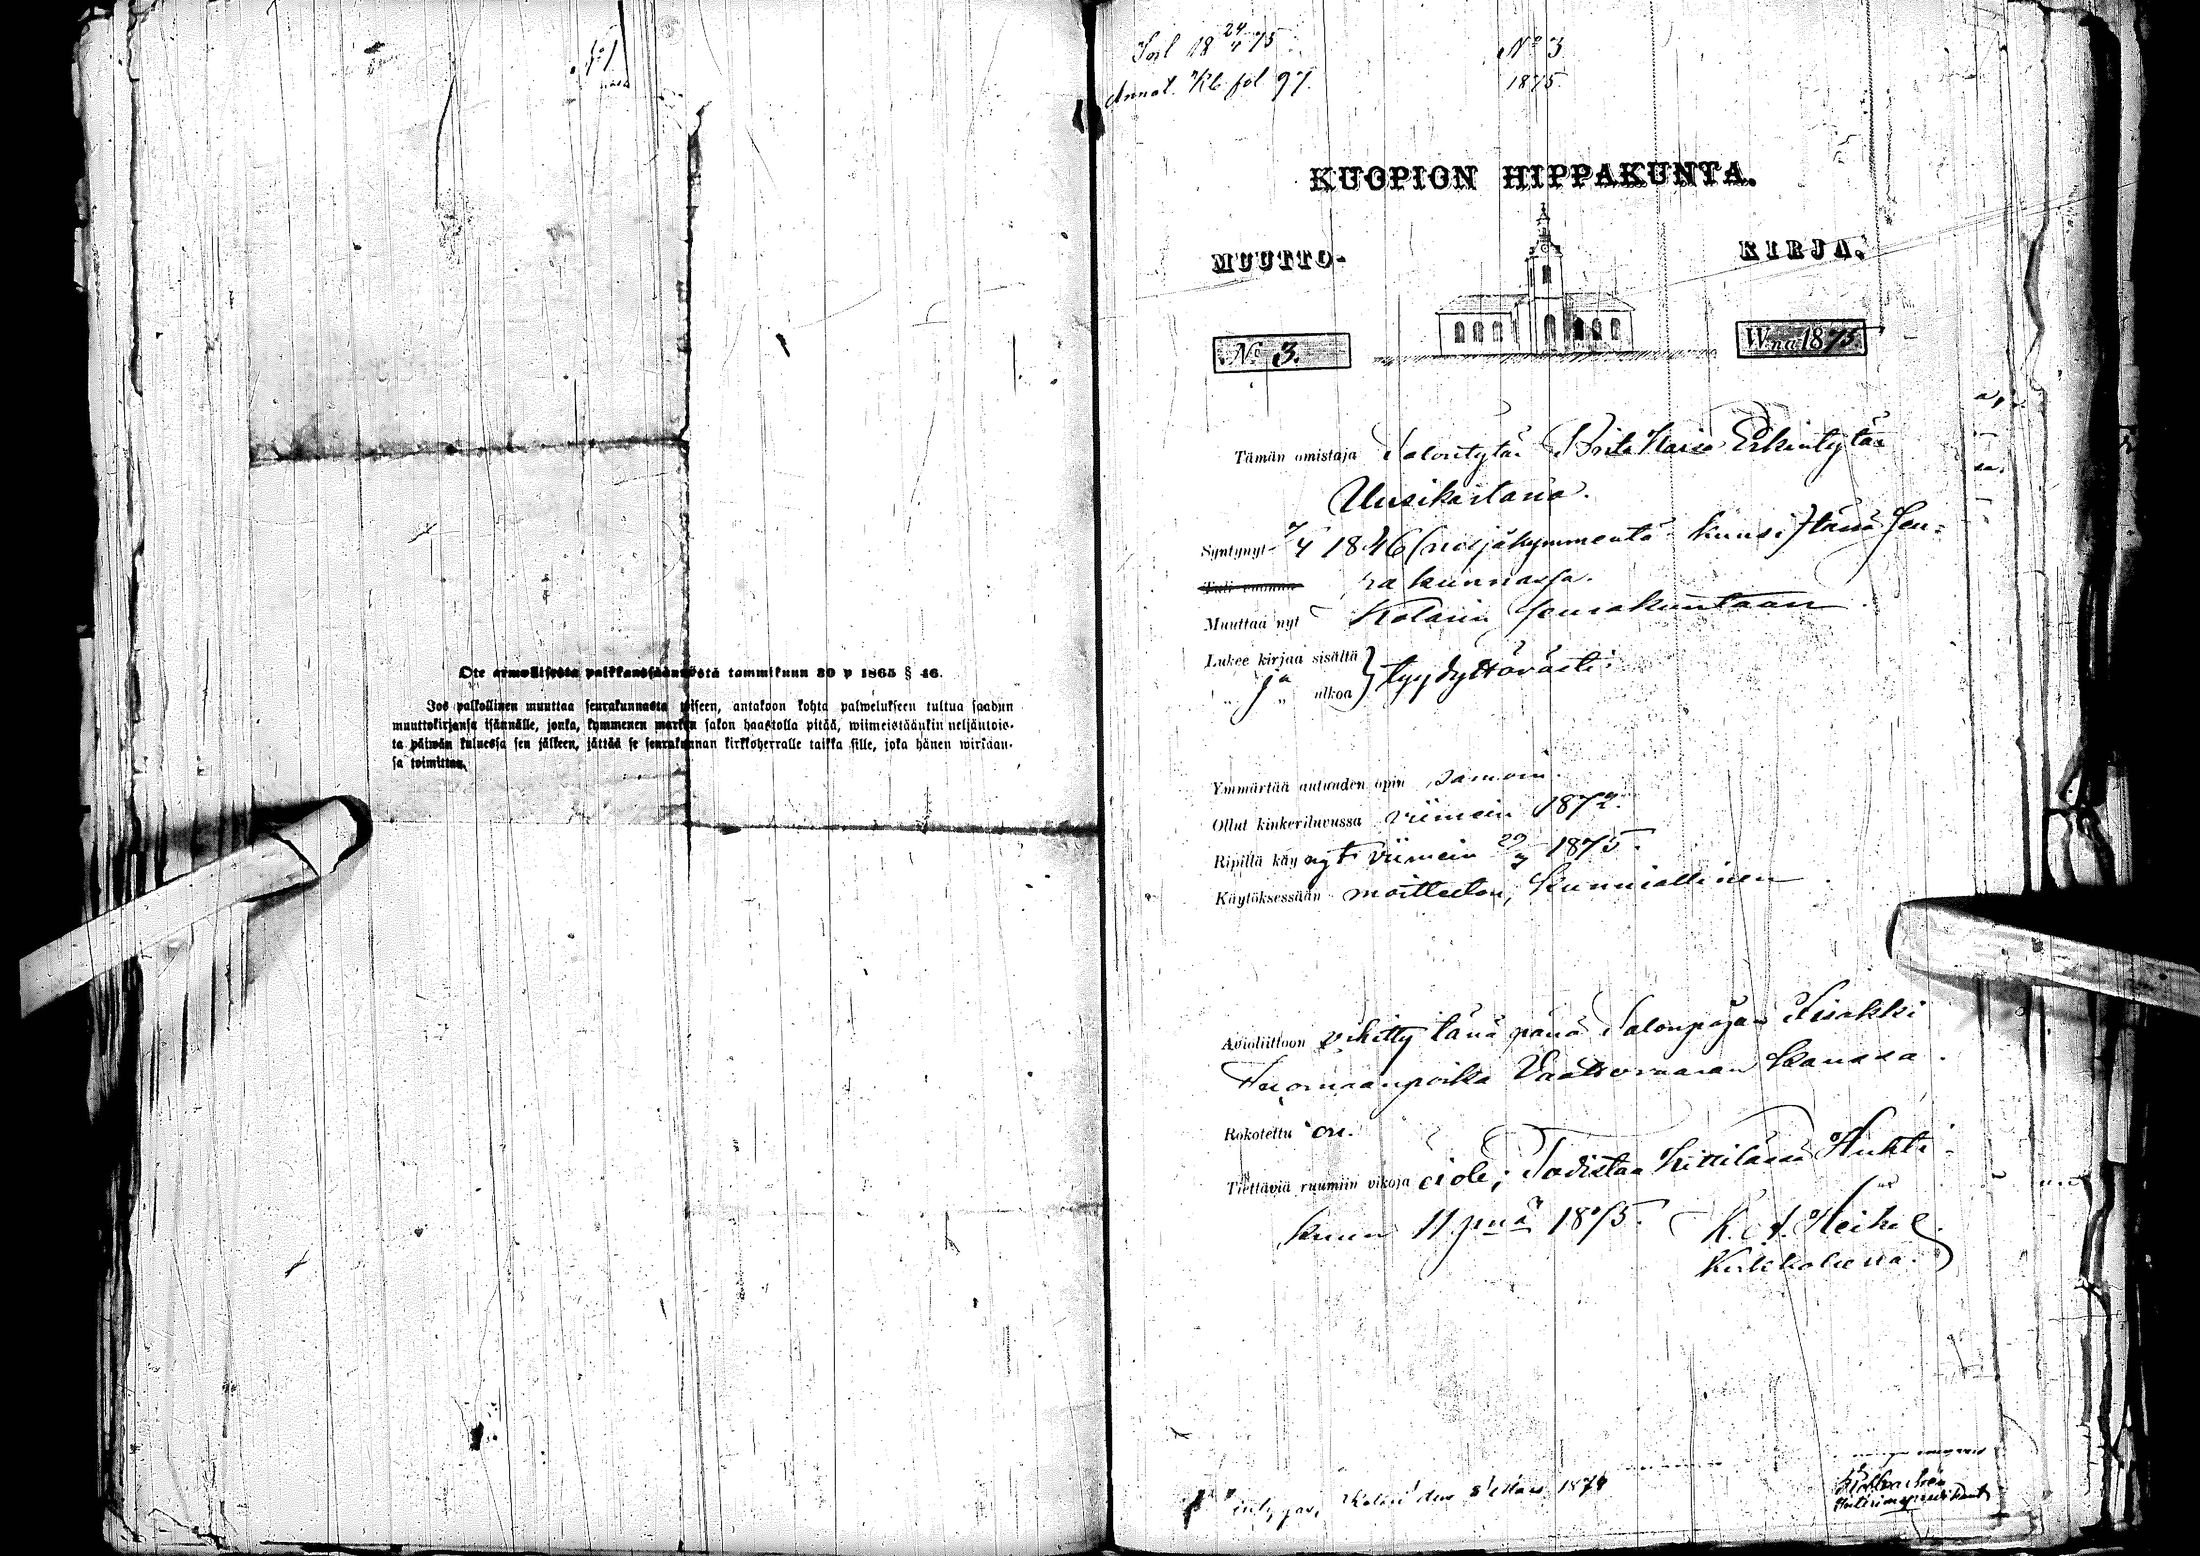 Ote armollisesta palkkaussäännöstä tammikuun 30 p 1865 § 46.
Jos palkollinen muuttaa seurakunnasta toiseen, antakoon kohta palwelukseen tultua saadun
muuttokirjansa isännälle, jonka, kymmenen markan sakon haastolla pitää, wiimeistäänkin neljäntois-
ta päiwän kuluessa sen jälkeen, jättää se seurakunnan kirkkoherralle taikka sille, joka hänen wirkaan-
sa toimittaa.
Inl 18 24/4 75
Annot. Kb. fol 97.
No 3
1875.
KUOPION HIPPAKUNTA.
MUUTTO- KIRJA.
No 3. W:na 1875
Tämän omistaja Talontytär Brita Maria Erkintytär
Uusikartano.
Syntynyt 7/4 1846 (neljäkymmentä kuusi) tässä Seu-
Tuli vuonna rakunnassa.
Muuttaa nyt Kolarin seurakuntaan.
Lukee kirjaa sisältä
" ja " ulkoa } tyydyttävästi:
Ymmärtää autuuden opin samoin.
Ollut kinkeriluvussa viimein 1872.
Ripillä käynyt viimein 1875.
Käytöksessään moitteeton, kunniallinen.
Avioliittoon vihitty tänä pänä Talonpojan Iisakki
Tuomaanpoika kanssa.
Rokotettu on.
Tiettäviä ruumiin vikoja ei ole; Todistaa Kittilässä Huhti-
kuun 11 pnä 1875. K. A. Heikel.
Kirkkoherra.
Kolari den 8 Mars 1874